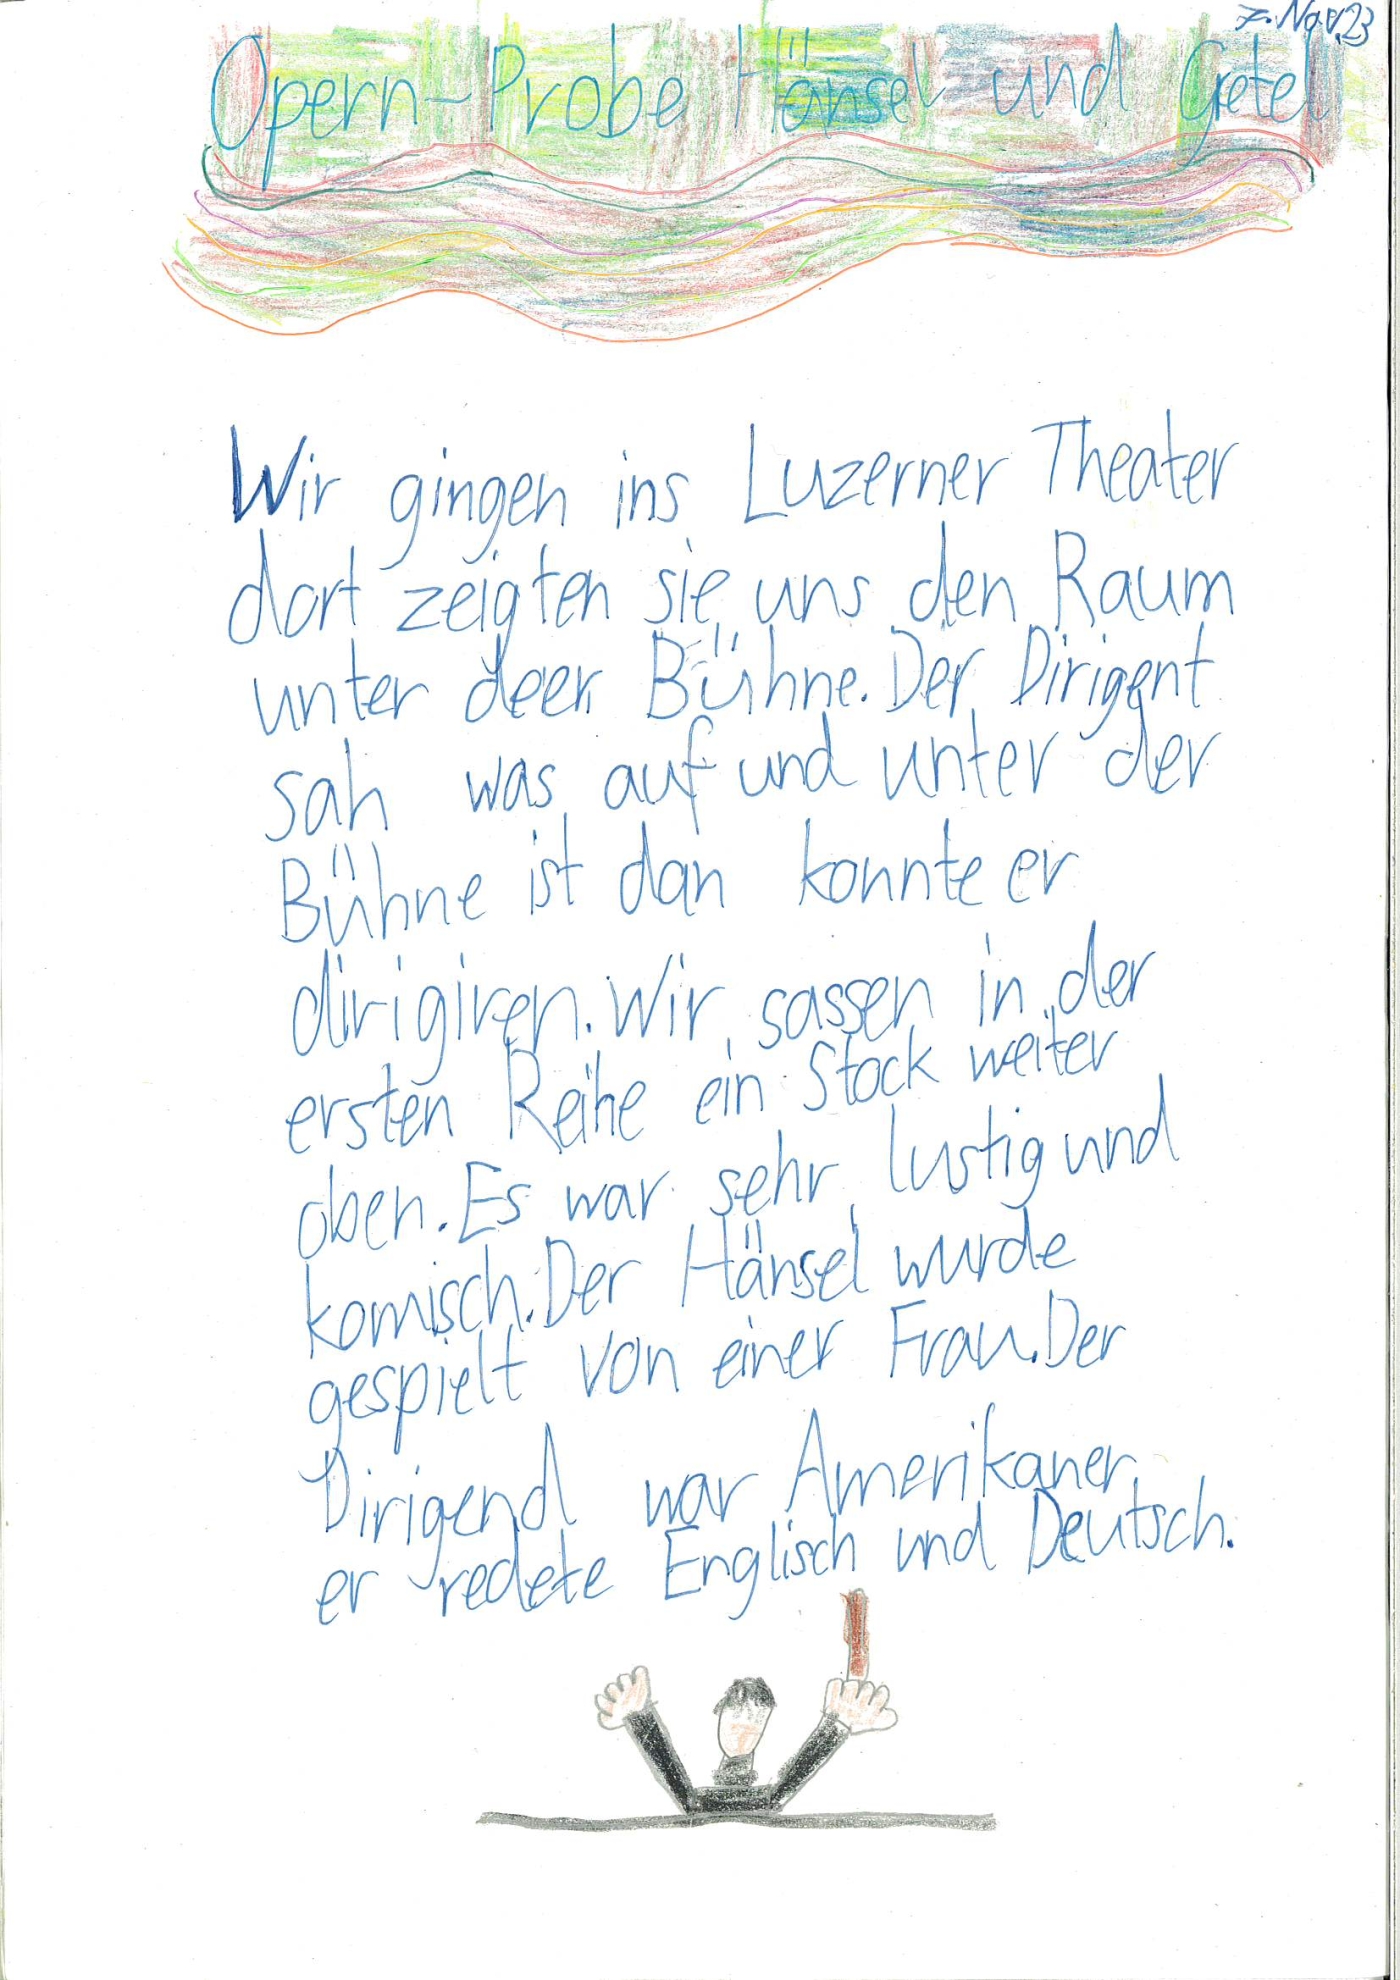 7. Nov. 23
Opern-Probe Hänsel und Gretel
Wir gingen ins Luzerner Theater
dort zeigten sie uns den Raum
unter deer Bühne. Der Dirigent
sah was auf und unter der
Bühne ist dan konnte er
dirigiren. Wir sassen in der
ersten Reihe ein Stock weiter
oben. Es war sehr lustig und
komisch. Der Hänsel wurde
gespielt von einer Frau. Der
Dirigend war Amerikaner,
er redete Englisch und Deutsch.